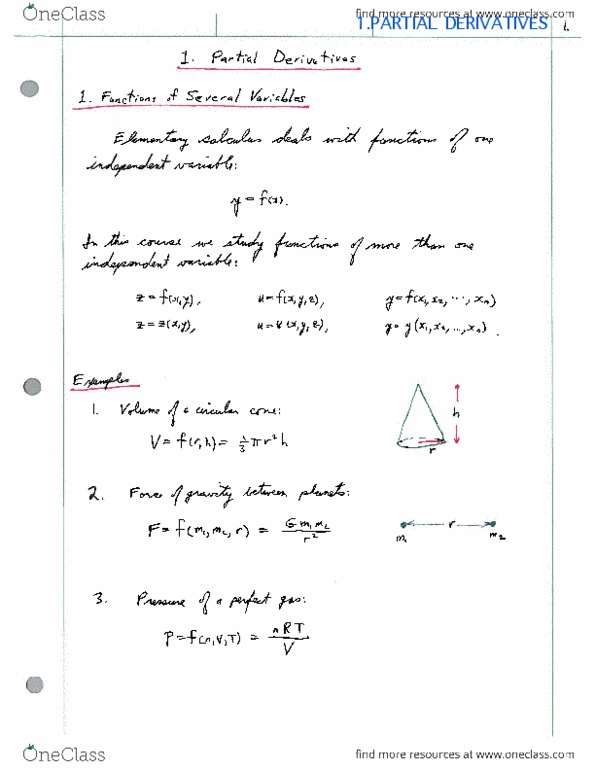 OneClass
find more resources at www.oneclass.com
1.PARTIAL DERIVATIVES 1.
1. Partial Derivatives
1. Functions of Several Variables
Elementary calculus deals with functions of one
independent variable:
y = f(x).
In this course we study functions of more than one
independent variable:
z = f(x,y), u = f(x,y,z), y = f(x₁, x₂, ..., xₙ)
z = z(x,y), u = u(x,y,z), y = y(x₁, x₂, ..., xₙ).
Examples
1. Volume of a circular cone:
V = f(r,h) = 1/3 πr²h
h
r
2. Force of gravity between planets:
F = f(m₁, m₂, r) = G m₁ m₂ / r²
r
m₁ m₂
3. Pressure of a perfect gas:
P = f(n,V,T) = nRT / V
OneClass
find more resources at www.oneclass.com